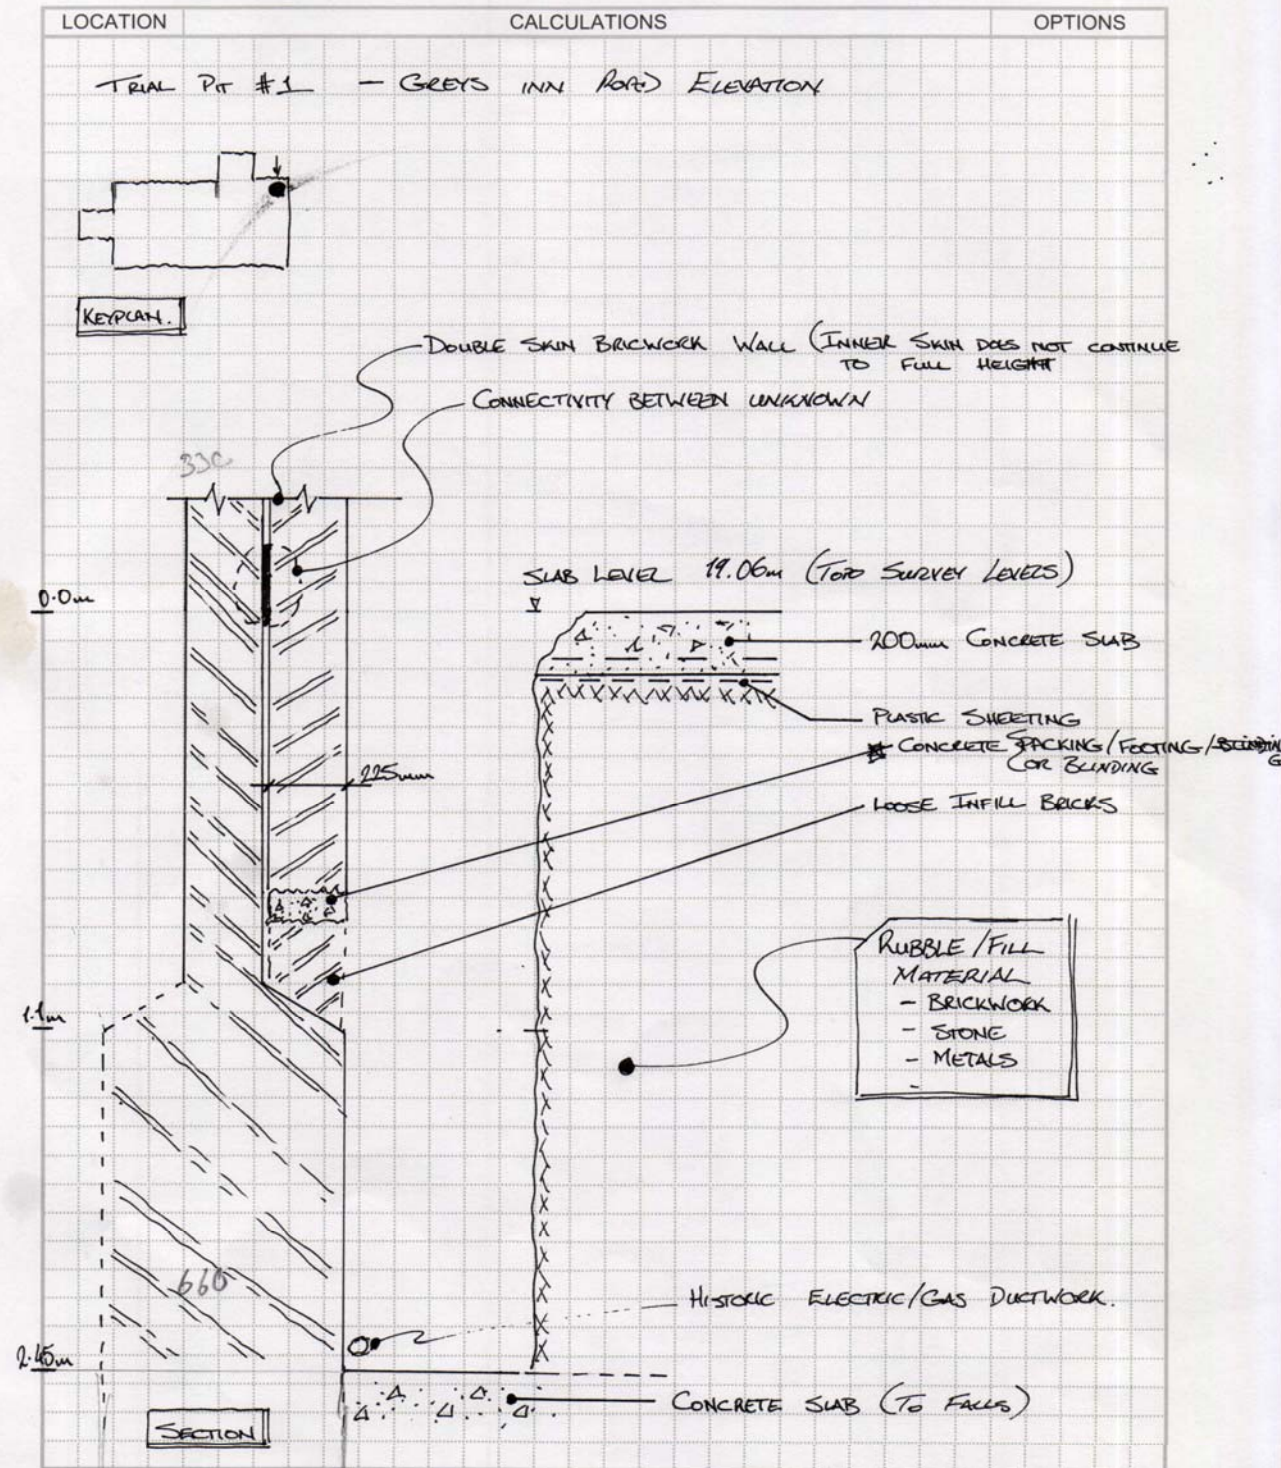 LOCATION
CALCULATIONS
OPTIONS
TRIAL PIT #1 — GREYS INN ROAD ELEVATION
KEYPLAN.
DOUBLE SKIN BRICWORK WALL (INNER SKIN DOES NOT CONTINUE
TO FULL HEIGHT
CONNECTIVITY BETWEEN UNKNOWN
330
SLAB LEVEL 19.06m (TOPO SURVEY LEVELS)
0.0m
200mm CONCRETE SLAB
PLASTIC SHEETING
CONCRETE PACKING/FOOTING/BLINDING
(OR BLINDING
225mm
LOOSE INFILL BRICKS
RUBBLE/FILL
MATERIAL
- BRICKWORK
- STONE
- METALS
-
1.1m
660
HISTORIC ELECTRIC/GAS DUCTWORK.
2.45m
CONCRETE SLAB (TO FALLS)
SECTION